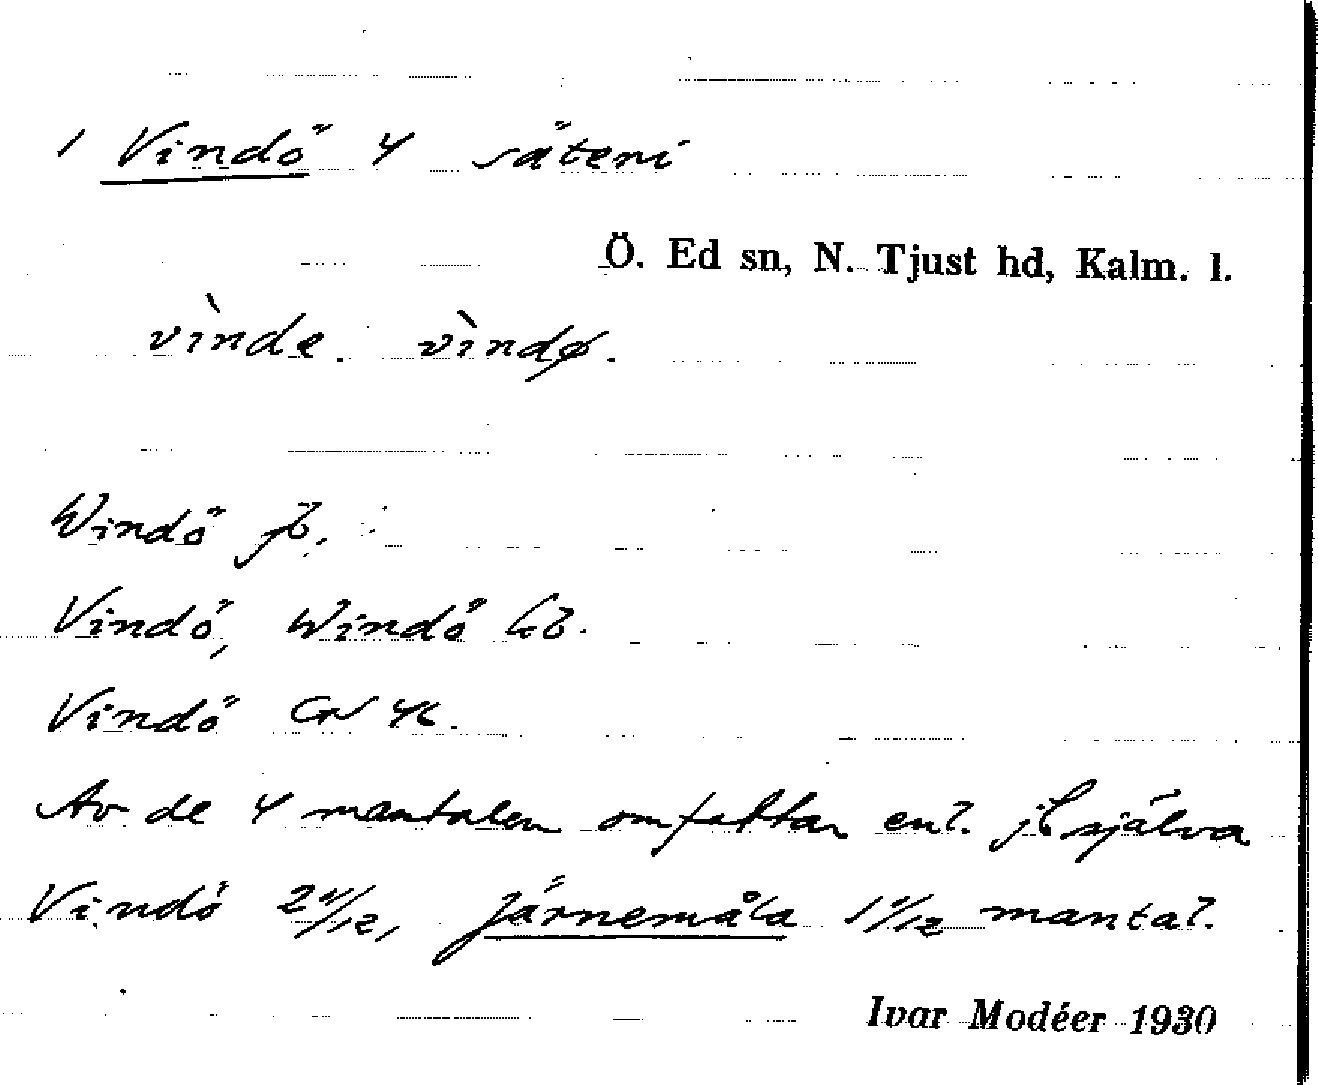 1 Vindö 4 säteri
Ö. Ed sn, N. Tjust hd, Kalm. l.
vìnde. vìndø.
Windö jb.
Vindö, Windö kb.
Vindö GV 46.
Av de 4 mantalen omfattar enl. jb själva
Vindö 2 11/12, Järnemåla 1 1/12 mantal.
Ivar Modéer 1930